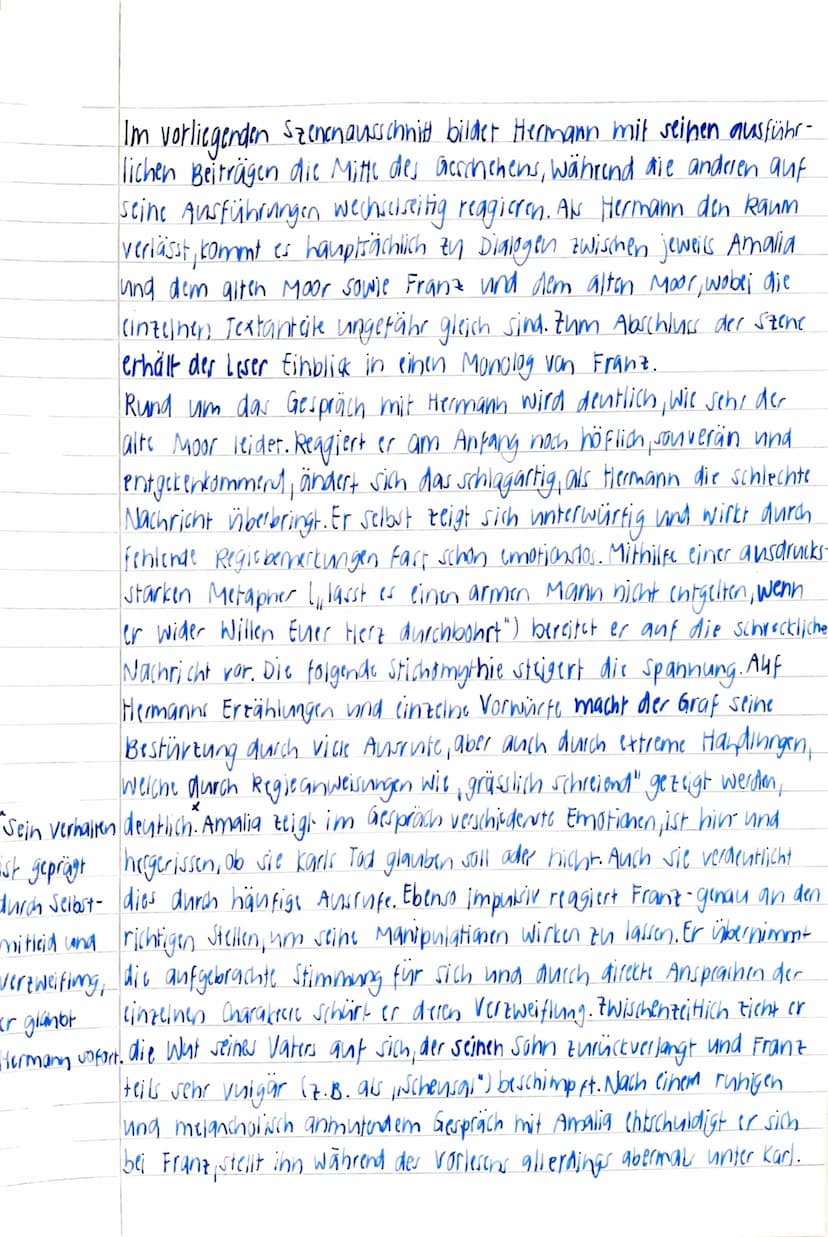 Im vorliegenden Szenenausschnitt bildet Hermann mit seinen ausführ-
lichen Beiträgen die Mitte des Geschehens, während die anderen auf
seine Ausführungen wechselseitig reagieren. Als Hermann den Raum
verlässt, kommt es hauptsächlich zu Dialogen zwischen jeweils Amalia
und dem alten Moor sowie Franz und dem alten Moor, wobei die
einzelnen Textanteile ungefähr gleich sind. Zum Abschluss der Szene
erhält der Leser Einblick in einen Monolog von Franz.
Rund um das Gespräch mit Hermann wird deutlich, wie sehr der
alte Moor leidet. Reagiert er am Anfang noch höflich, souverän und
entgegenkommend, ändert sich das schlagartig, als Hermann die schlechte
Nachricht überbringt. Er selbst zeigt sich unterwürfig und wirkt durch
fehlende Regiebemerkungen fast schon emotionslos. Mithilfe einer ausdrucks-
starken Metapher („lasst es einen armen Mann nicht entgelten, wenn
er wider Willen Euer Herz durchbohrt") bereitet er auf die schreckliche
Nachricht vor. Die folgende Stichomythie steigert die Spannung. Auf
Hermanns Erzählungen und einzelne Vorwürfe macht der Graf seine
Bestürzung durch viele Ausrufe, aber auch durch extreme Handlungen,
welche durch Regieanweisungen wie „grässlich schreiend" gezeigt werden,
deutlich.ˣ Amalia zeigt im Gespräch verschiedenste Emotionen, ist hin- und
hergerissen, ob sie Karls Tod glauben soll oder nicht. Auch sie verdeutlicht
dies durch häufige Ausrufe. Ebenso impulsiv reagiert Franz - genau an den
richtigen Stellen, um seine Manipulationen wirken zu lassen. Er übernimmt
die aufgebrachte Stimmung für sich und durch direkte Ansprachen der
einzelnen Charaktere schürt er deren Verzweiflung. Zwischenzeitlich zieht er
die Wut seines Vaters auf sich, der seinen Sohn zurückverlangt und Franz
teils sehr vulgär (z.B. als „Scheusal") beschimpft. Nach einem ruhigen
und melancholisch anmutendem Gespräch mit Amalia entschuldigt er sich
bei Franz, stellt ihn während des Vorlesens allerdings abermals unter Karl.
ˣSein Verhalten
ist geprägt
durch Selbst-
mitleid und
Verzweiflung,
er glaubt
Hermann sofort.